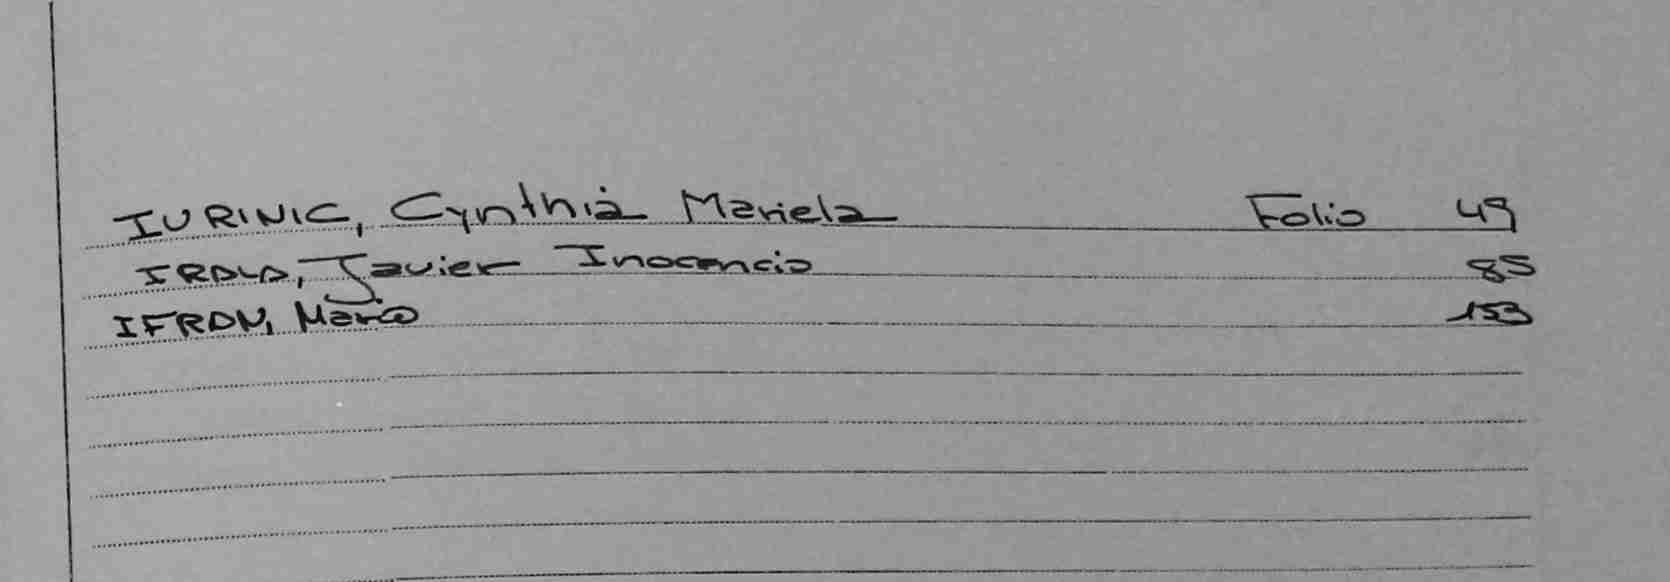 IURINIC, Cynthia Mariela Folio 49
IRALA, Javier Inocencio 85
IFRAN, Marco 153